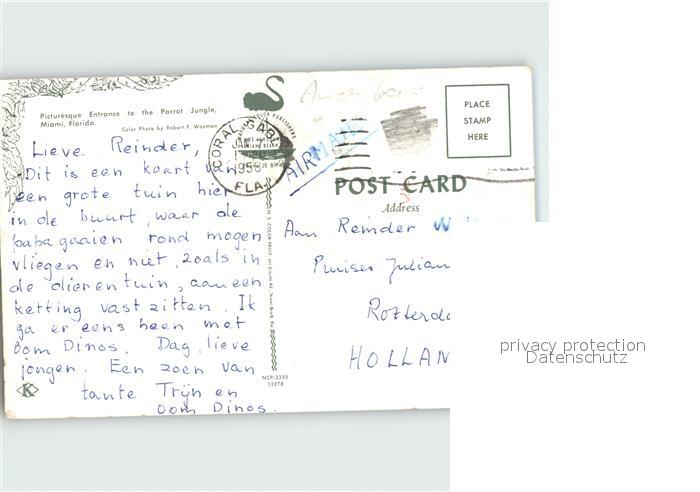 Picturesque Entrance to the Parrot Jungle,
Miami, Florida.
Color Photo by Robert F. Waxman
Lieve Reinder,
Dit is een kaart van
een grote tuin hier
in de buurt, waar de
papagaaien rond mogen
vliegen en niet, zoals in
de dierentuin, aan een
ketting vast zitten. Ik
ga er eens heen met
oom Dinos. Dag, lieve
jongen. Een zoen van
tante Trijn en
oom Dinos.
K
CORAL GABL
JAN
1958
FLA.
AIRMAIL
NCP-3355
13278
PLACE
STAMP
HERE
POST CARD
Address
Aan Reinder W
Julian
Rotterd
HOLLAN
privacy protection
Datenschutz